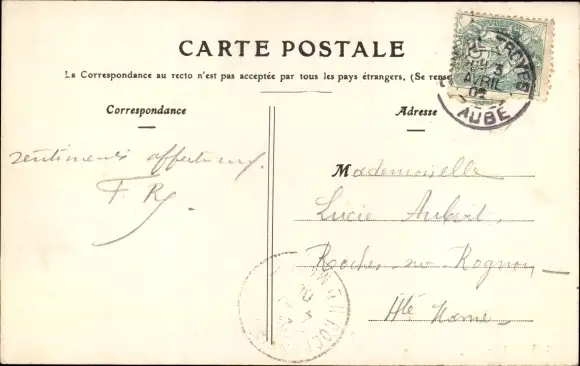 CARTE POSTALE
La Correspondance au recto n'est pas acceptée par tous les pays étrangers. (Se rense
Correspondance
Adresse
TROYES
3
AVRIL
AUBE
sentiments affectueux.
F. R.
Mademoiselle
Lucie Aubert,
Roches sur Rognon
Hte Marne